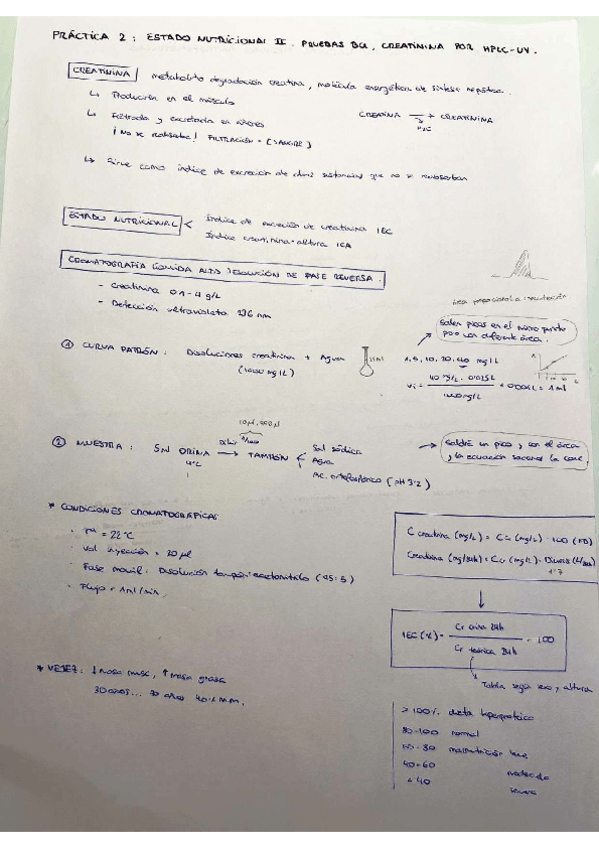 PRÁCTICA 2 : ESTADO NUTRICIONAL II. PRUEBAS BQ, CREATININA POR HPLC-UV.
CREATININA metabolito degradación creatina, molécula energética de síntesis hepática.
↳ Producción en el músculo
CREATINA → CREATININA
↳ Filtrada y excretada en riñones
¡No se reabsorbe! FILTRACIÓN = [SANGRE]
↳ Sirve como índice de excreción de otras sustancias que no se reabsorban
ESTADO NUTRICIONAL < Índice de excreción de creatinina IEC
Índice creatinina-altura ICA
CROMATOGRAFÍA LÍQUIDA ALTA RESOLUCIÓN DE FASE REVERSA.
- Creatinina 0.1-4 g/L
- Detección ultravioleta 236 nm
área proporcional a concentración
Salen picos en el mismo punto pero con diferente área.
① CURVA PATRÓN : Disoluciones creatinina + Agua
(1000 mg/L)
1, 5, 10, 20, 40 mg/L
Vi = 40 mg/L · 0.025L / 1000 mg/L = 0.001 L = 1 ml
10 µl, 990 µl
② MUESTRA : 5 ml ORINA → TAMPÓN < Sal sódica
4ºC
Agua
Ac. ortofosfórico (pH 3'2)
→ Saldrá un pico y con el área y la ecuación sacamos la conc.
* CONDICIONES CROMATOGRÁFICAS
· Tª = 22ºC
· Vol inyección = 20 µl
· Fase móvil: Disolución tampón:acetonitrilo (95:5)
· Flujo = 1 ml/min.
C creatinina (mg/L) = Cc (mg/L) · 100 (FD)
Creatinina (mg/24h) = Cc (mg/L) · Diuresis (L/24h)
1'7
IEC (%) = Cr orina 24h / Cr teórica 24h · 100
Tabla según sexo y altura
* VEJEZ : ↓ masa musc, ↑ masa grasa
30 años ... 70 años 40% M.M.
> 100% dieta hiperproteica
80-100 normal
60-80 malnutrición leve
40-60 moderada
< 40 severa